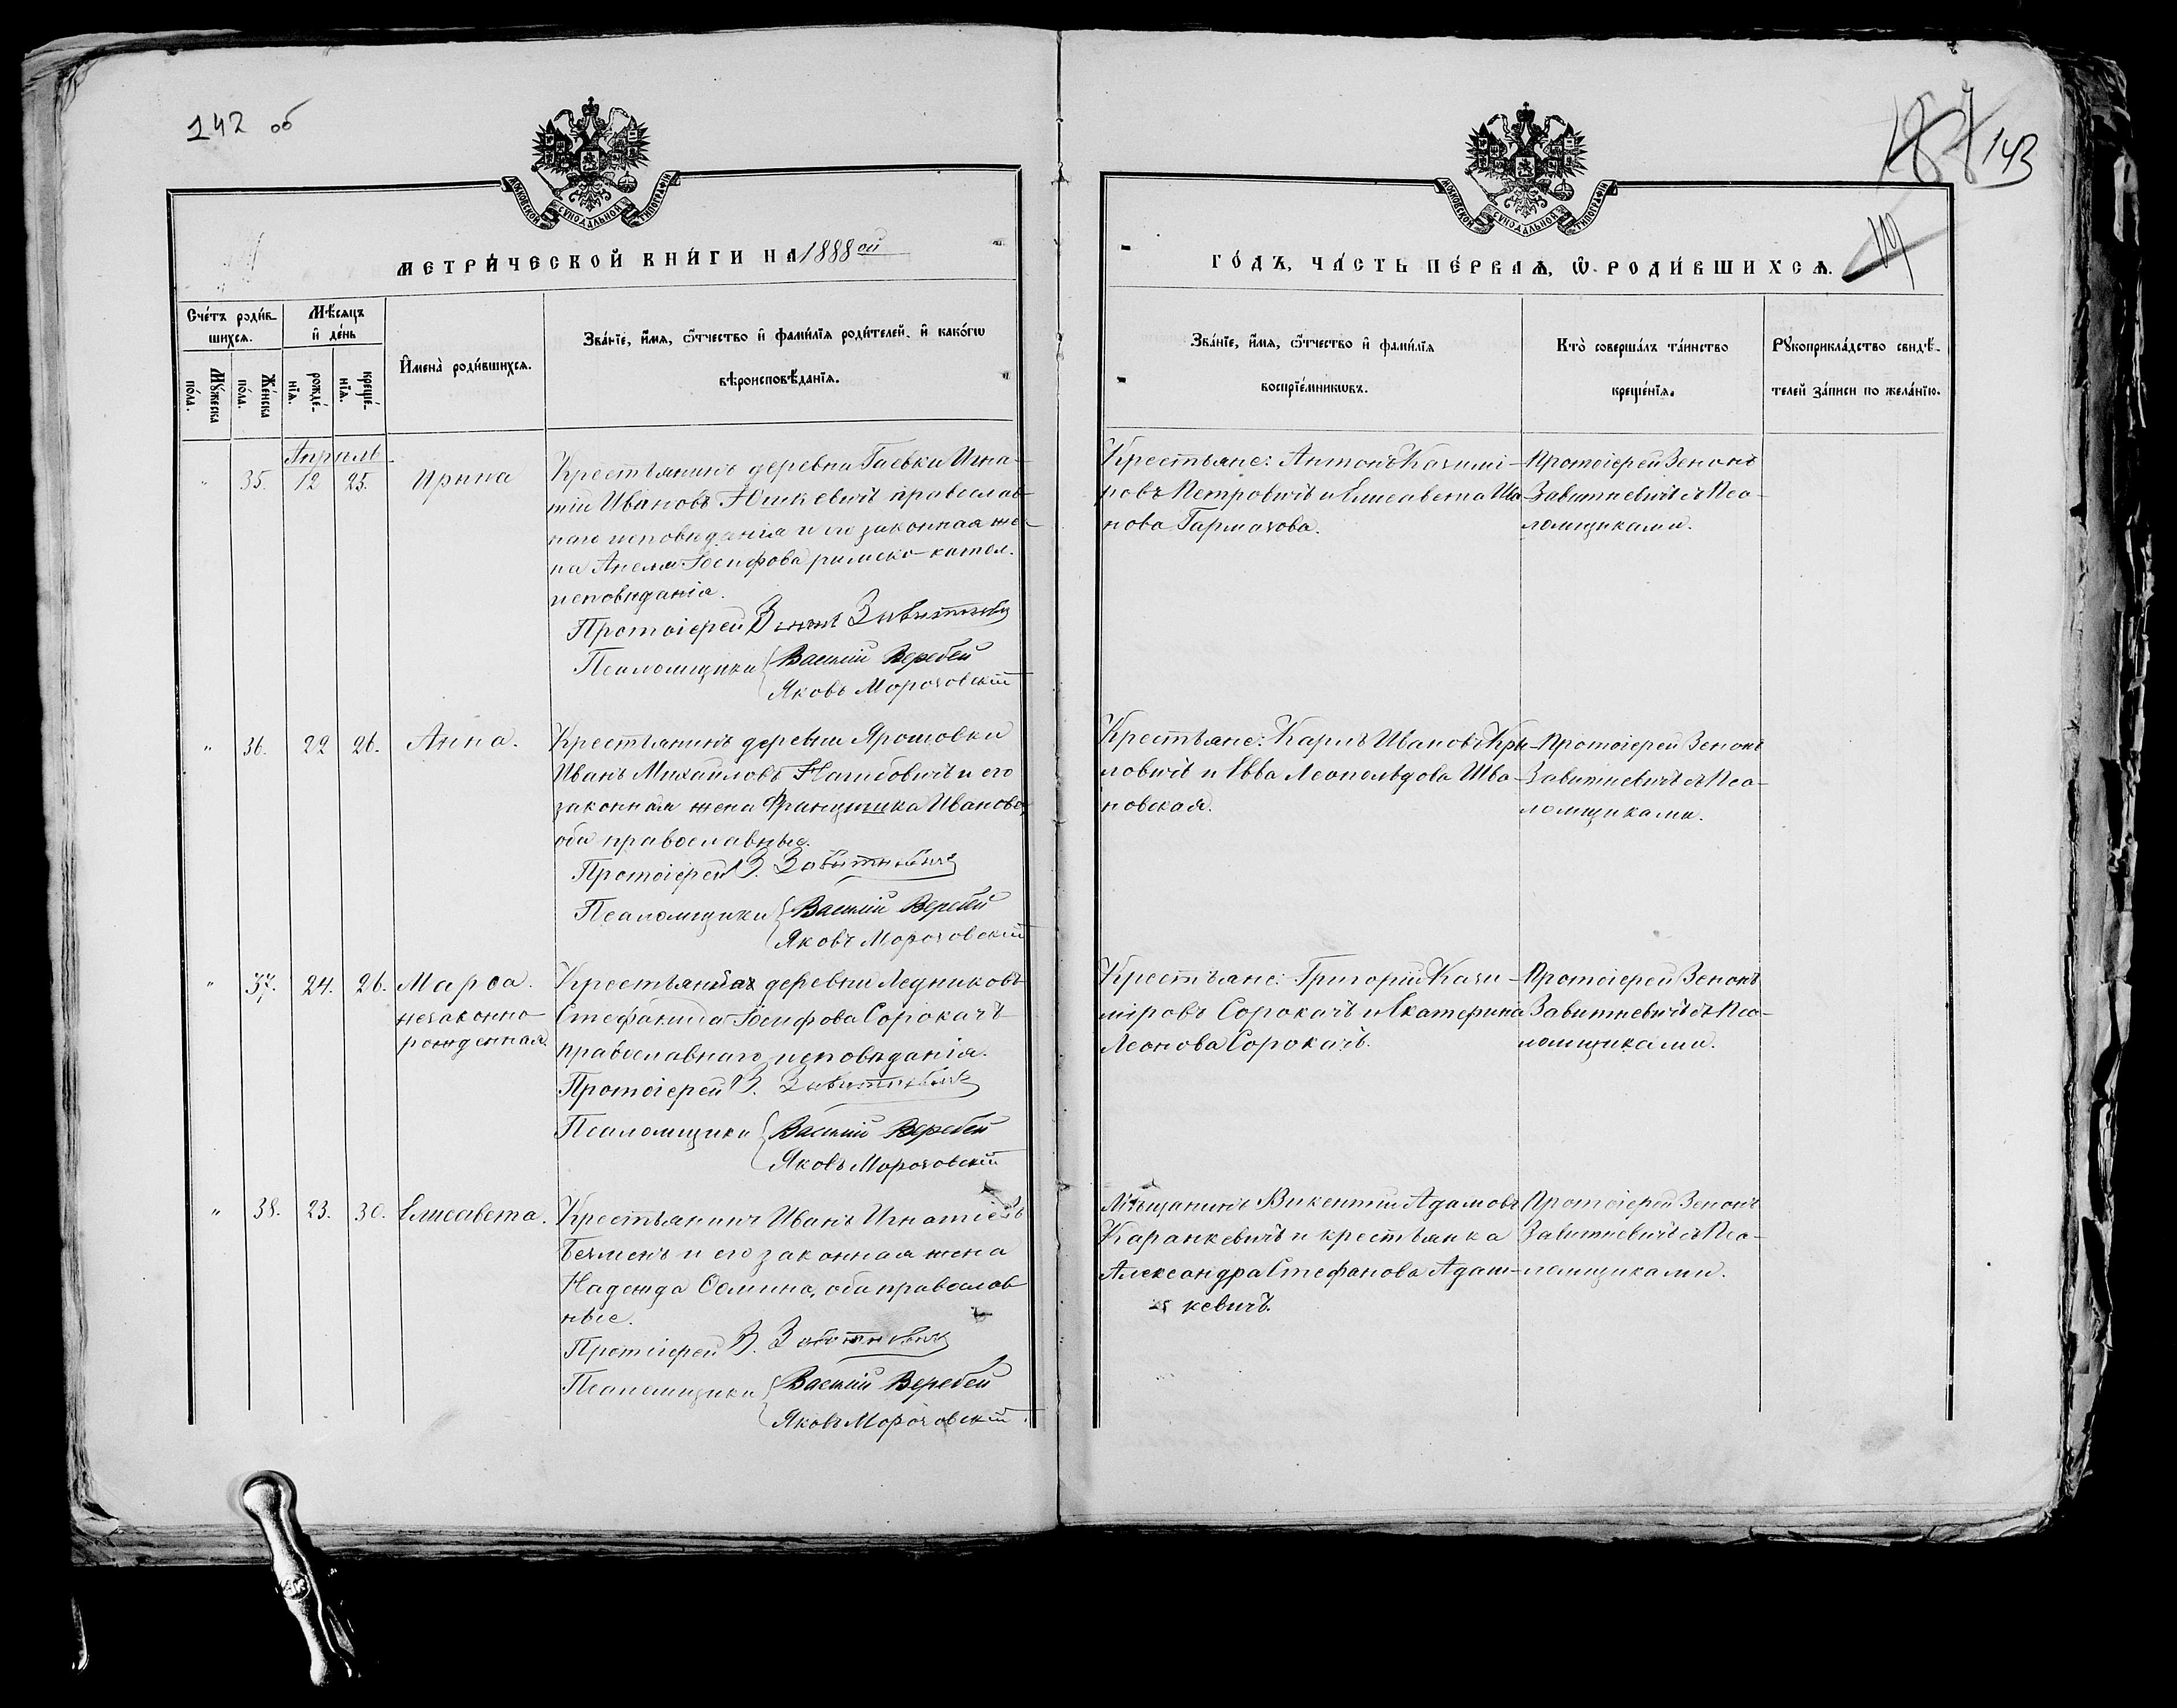 142 об
МОСКОВСКОЙ СУНОДАЛЬНОЙ ТИПОГРАФІИ
МЕТРИ́ЧЕСКОЙ КНИ́ГИ НА 1888 ой
Сче́тъ роди́в-
шихся.
Мѣ́сяцъ
и҆ де́нь
Мꙋ́жеска
по́ла.
Же́нска
по́ла.
рожде́-
нїѧ.
креще́-
нїѧ.
И҆мена̀ роди́вшихсѧ.
Зва́нїе, и҆́мѧ, ѻ҆́тчество и҆ фами́лїѧ роди́телей, и҆ како́гѡ
вѣроисповѣ́данїѧ.
Апрѣль
" 35. 12 25. Ирина
Крестьянинъ деревни Гаевки Игна-
тій Ивановъ Юшкевичъ православ-
наго исповѣданія и его законная же-
на Анеля Іосифова римско-катол.
исповѣданія.
Протоіерей Зенонъ Завитневичъ
Псаломщики Василій Веребей
Яковъ Морозовскій
" 36. 22 26. Анна.
Крестьянинъ деревни Ярошовки
Иванъ Михайловъ и его
законная жена Францишка Иванова,
оба православные.
Протоіерей З. Завитневичъ
Псаломщики Василій Веребей
Яковъ Морозовскій
" 37. 24. 26. Марѳа.
незаконно-
рожденная.
Крестьянка деревни Ледниковъ
Стефанида Іосифова Сорокачъ
православнаго исповѣданія.
Протоіерей З. Завитневичъ
Псаломщики Василій Веребей
Яковъ Морозовскій
" 38. 23. 30. Елисавета.
Крестьянинъ Иванъ Игнатіевъ
Безменъ и его законная жена
Надежда Ѳомина, оба православ-
ные.
Протоіерей З. Завитневичъ
Псаломщики Василій Веребей
Яковъ Морозовскій.
143
МОСКОВСКОЙ СУНОДАЛЬНОЙ ТИПОГРАФІИ
ГО́ДЪ, ЧА́СТЬ ПЕ́РВАѦ, Ѡ҆ РОДИ́ВШИХСѦ.
Зва́нїе, и҆́мѧ, ѻ҆́тчество и҆ фами́лїѧ
воспрїе́мникѡвъ.
Кто̀ соверша́лъ та́инство
креще́нїѧ.
Рꙋкоприкла́дство свидѣ́-
телей за́писи по жела́нїю.
Крестьяне: Антонъ Казими-
ровъ Петровичъ и Елисавета Ива-
нова Гармазова.
Протоіерей Зенонъ
Завитневичъ съ Пса-
ломщиками.
Крестьяне: Карлъ Ивановъ Кры-
ловичъ и Евва Леопольдова Ива-
новская.
Протоіерей Зенонъ
Завитневичъ съ Пса-
ломщиками.
Крестьяне: Григорій Кази-
міровъ Сорокачъ и Екатерина
Леонова Сорокачъ.
Протоіерей Зенонъ
Завитневичъ съ Пса-
ломщиками.
Мѣщанинъ Викентій Адамовъ
Каранкевичъ и крестьянка
Александра Стефанова Адаш-
кевичъ.
Протоіерей Зенонъ
Завитневичъ съ Пса-
ломщиками.